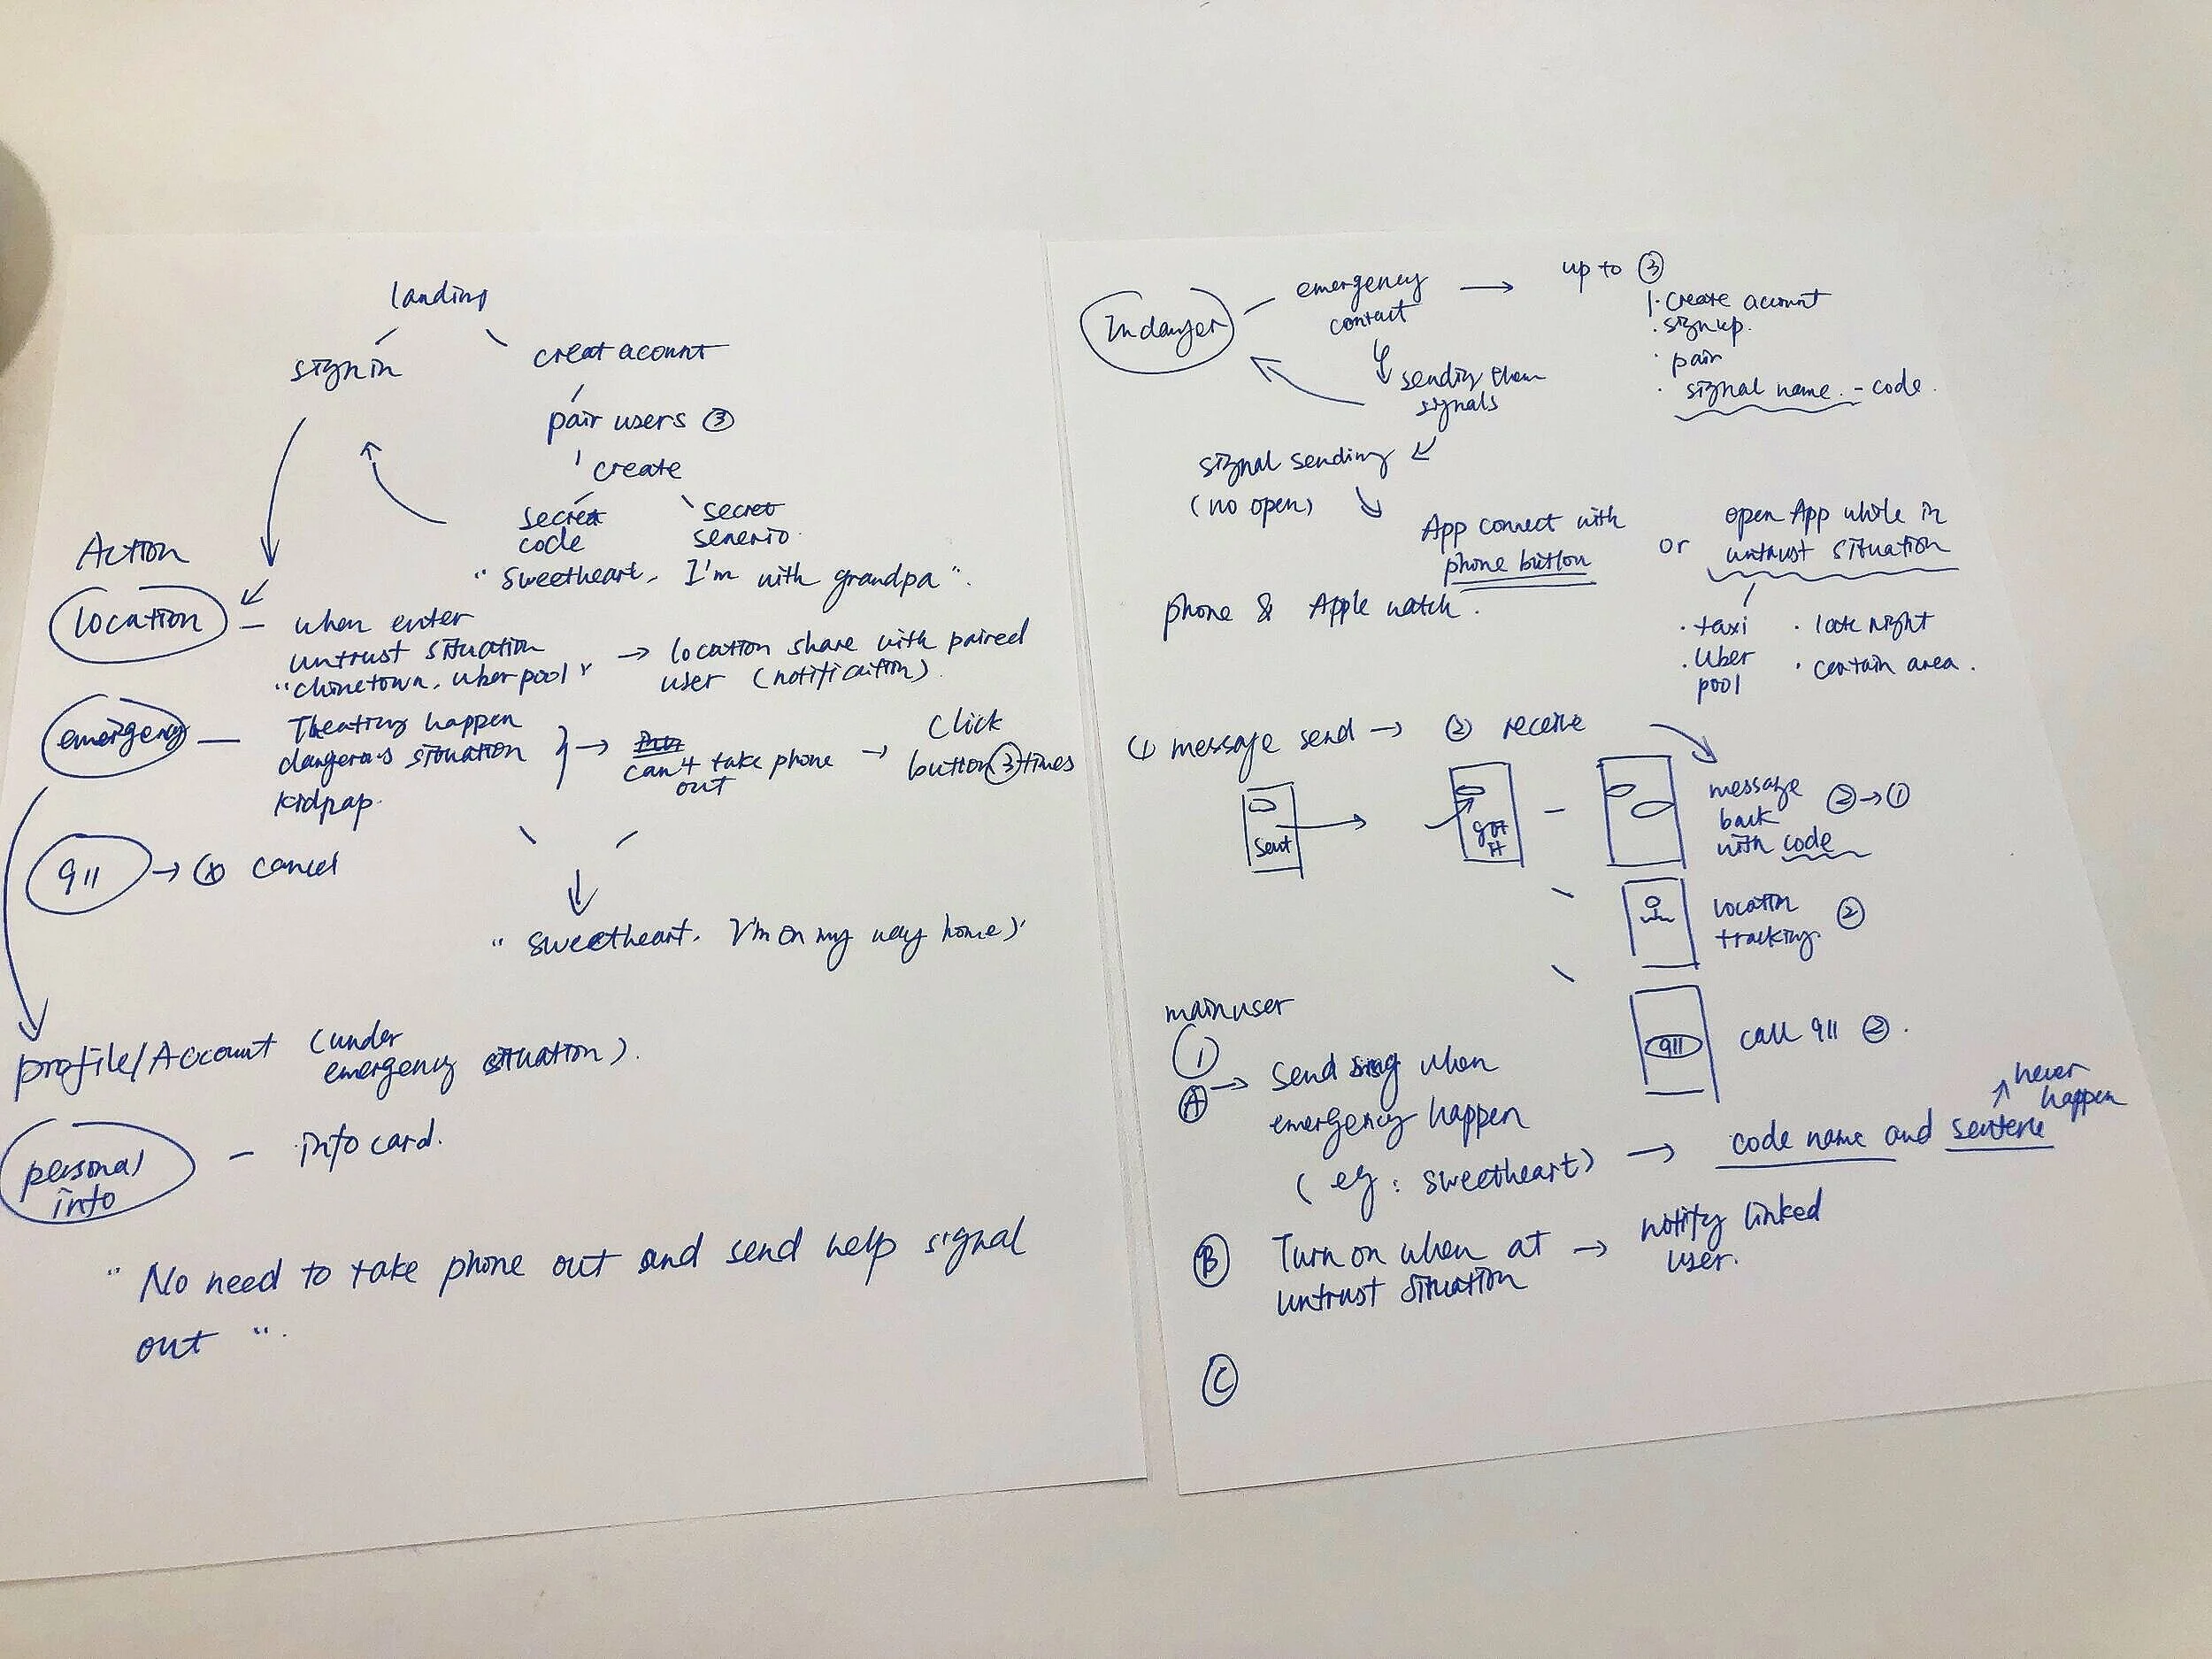 landing
sign in
creat acount
pair users ③
create
secret
code
secret
senerio.
" sweetheart, I'm with grandpa ".
Action
location
– when enter
untrust situation
"chinetown, uber pool"
→ location share with paired
user (notification)
emergency
—
happen
dangerous situation
kidnap.
} →
can't take phone
out
→ Click
button ③ times
911 → ⓧ cancel
" sweetheart. I'm on my way home )'
profile/Account (under
emergency situation).
personal
info
– info card.
" No need to take phone out and send help signal
out ".
In danger
emergency
contact
→ up to ③
1. create account
. sign up.
· pair
· signal name. - code.
sending them
signals
signal sending
(no open)
App connect with
phone button
or
open App while in
untrust situation
phone & Apple watch.
· taxi
· late night
. Uber
pool
· certain area.
message send → ② receive
Sent
got
it
message
back
with code
② → ①
location
tracking.
②
911
call 911 ②.
main user
①
Ⓐ → send when
emergency happen
( eg : sweetheart) → code name and sentene
never
happen
Ⓑ Turn on when at
untrust situation
→ notify linked
user.
Ⓒ